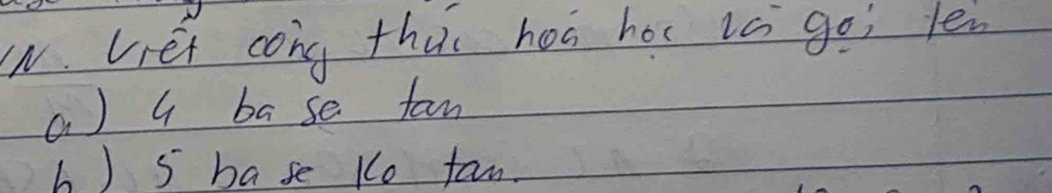 IV. Viết công thức hoá học và gọi tên
a) 4 ba se tan
b) 5 ba se ko tan.